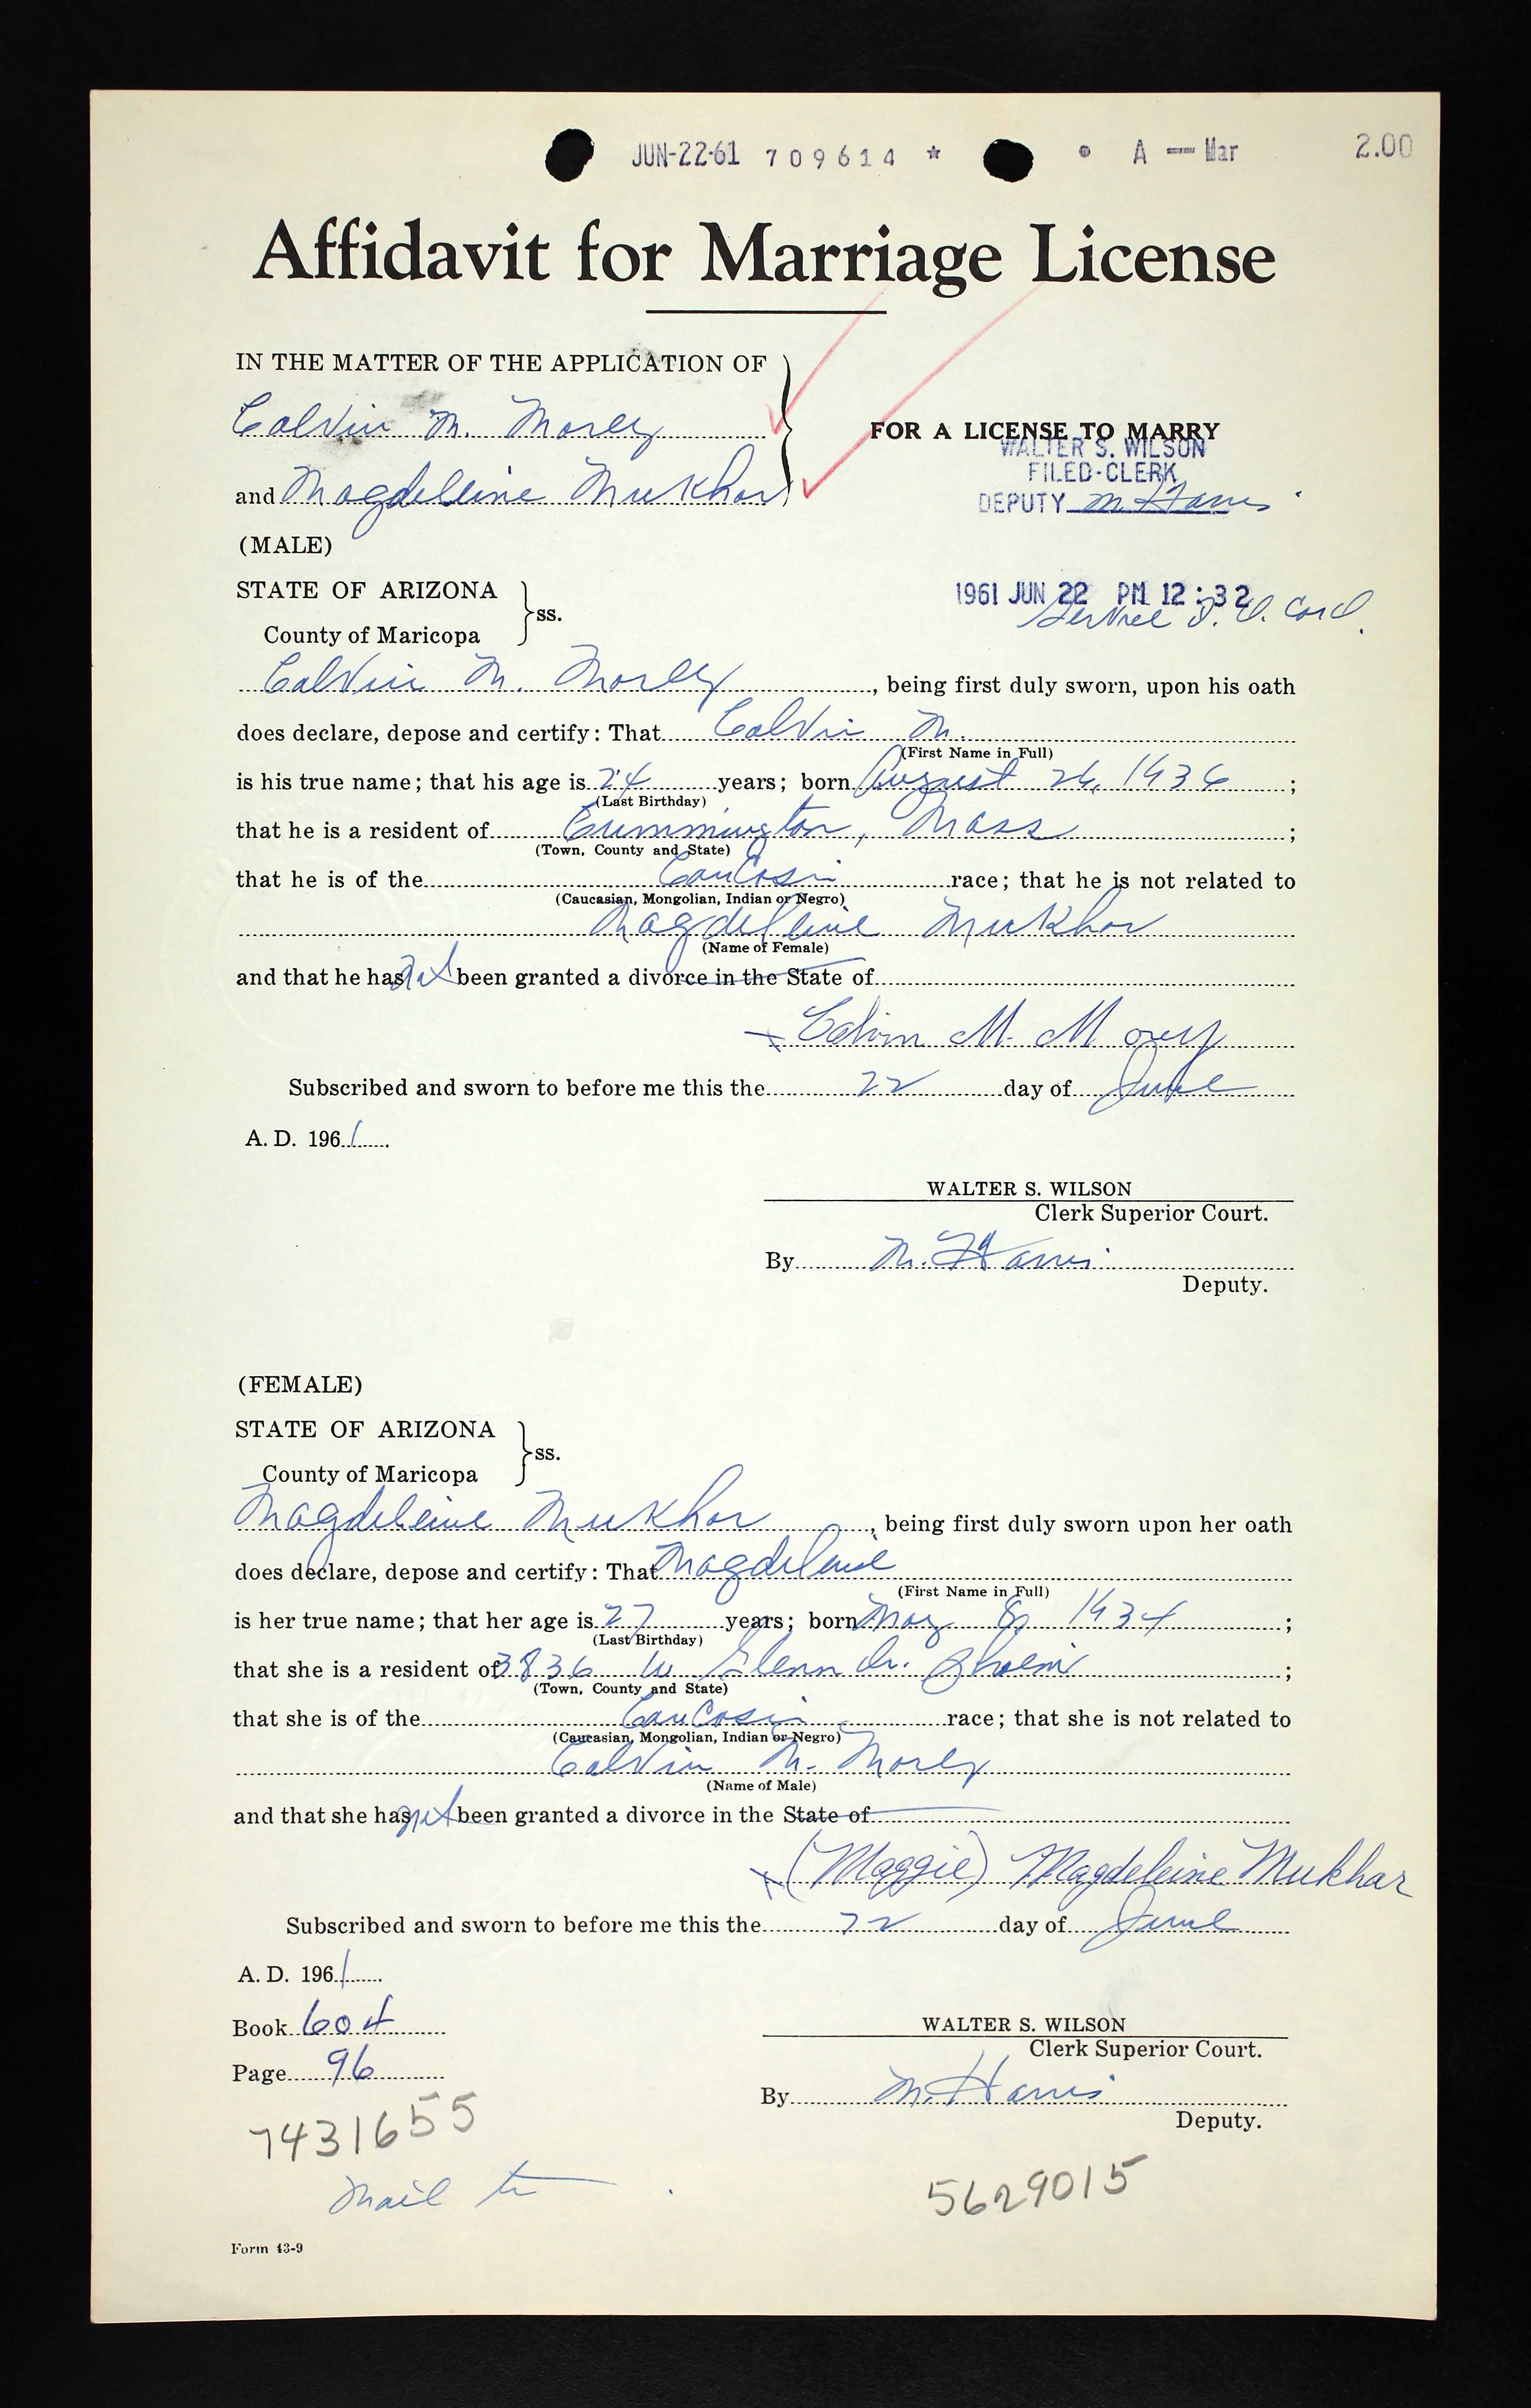 JUN-22-61 709614 * • A — Mar 2.00
Affidavit for Marriage License
IN THE MATTER OF THE APPLICATION OF
Calvin M. Morey
FOR A LICENSE TO MARRY
WALTER S. WILSON
FILED-CLERK
and Magdeleine Mukhar
DEPUTY M. Harris
(MALE)
STATE OF ARIZONA
ss.
County of Maricopa
1961 JUN 22 PM 12:32
Service I. D. Card.
Calvin M. Morey, being first duly sworn, upon his oath
does declare, depose and certify: That Calvin M.
(First Name in Full)
is his true name; that his age is 24 years; born August 26, 1936;
(Last Birthday)
that he is a resident of Cummington, Mass;
(Town, County and State)
that he is of the Caucasin race; that he is not related to
(Caucasian, Mongolian, Indian or Negro)
Magdeleine Mukhar
(Name of Female)
and that he has not been granted a divorce in the State of
x Calvin M. Morey
Subscribed and sworn to before me this the 22 day of June
A. D. 1961
WALTER S. WILSON
Clerk Superior Court.
By M. Harris
Deputy.
(FEMALE)
STATE OF ARIZONA
ss.
County of Maricopa
Magdeleine Mukhar, being first duly sworn upon her oath
does declare, depose and certify: That Magdeleine
(First Name in Full)
is her true name; that her age is 27 years; born May 8, 1934;
(Last Birthday)
that she is a resident of 3836 W Glenn Dr. Phoenix;
(Town, County and State)
that she is of the Caucasin race; that she is not related to
(Caucasian, Mongolian, Indian or Negro)
Calvin M. Morey
(Name of Male)
and that she has not been granted a divorce in the State of
x (Maggie) Magdeleine Mukhar
Subscribed and sworn to before me this the 22 day of June
A. D. 1961
Book 604
WALTER S. WILSON
Clerk Superior Court.
Page 96
By M. Harris
Deputy.
7431655
Mail to
5629015
Form 43-9